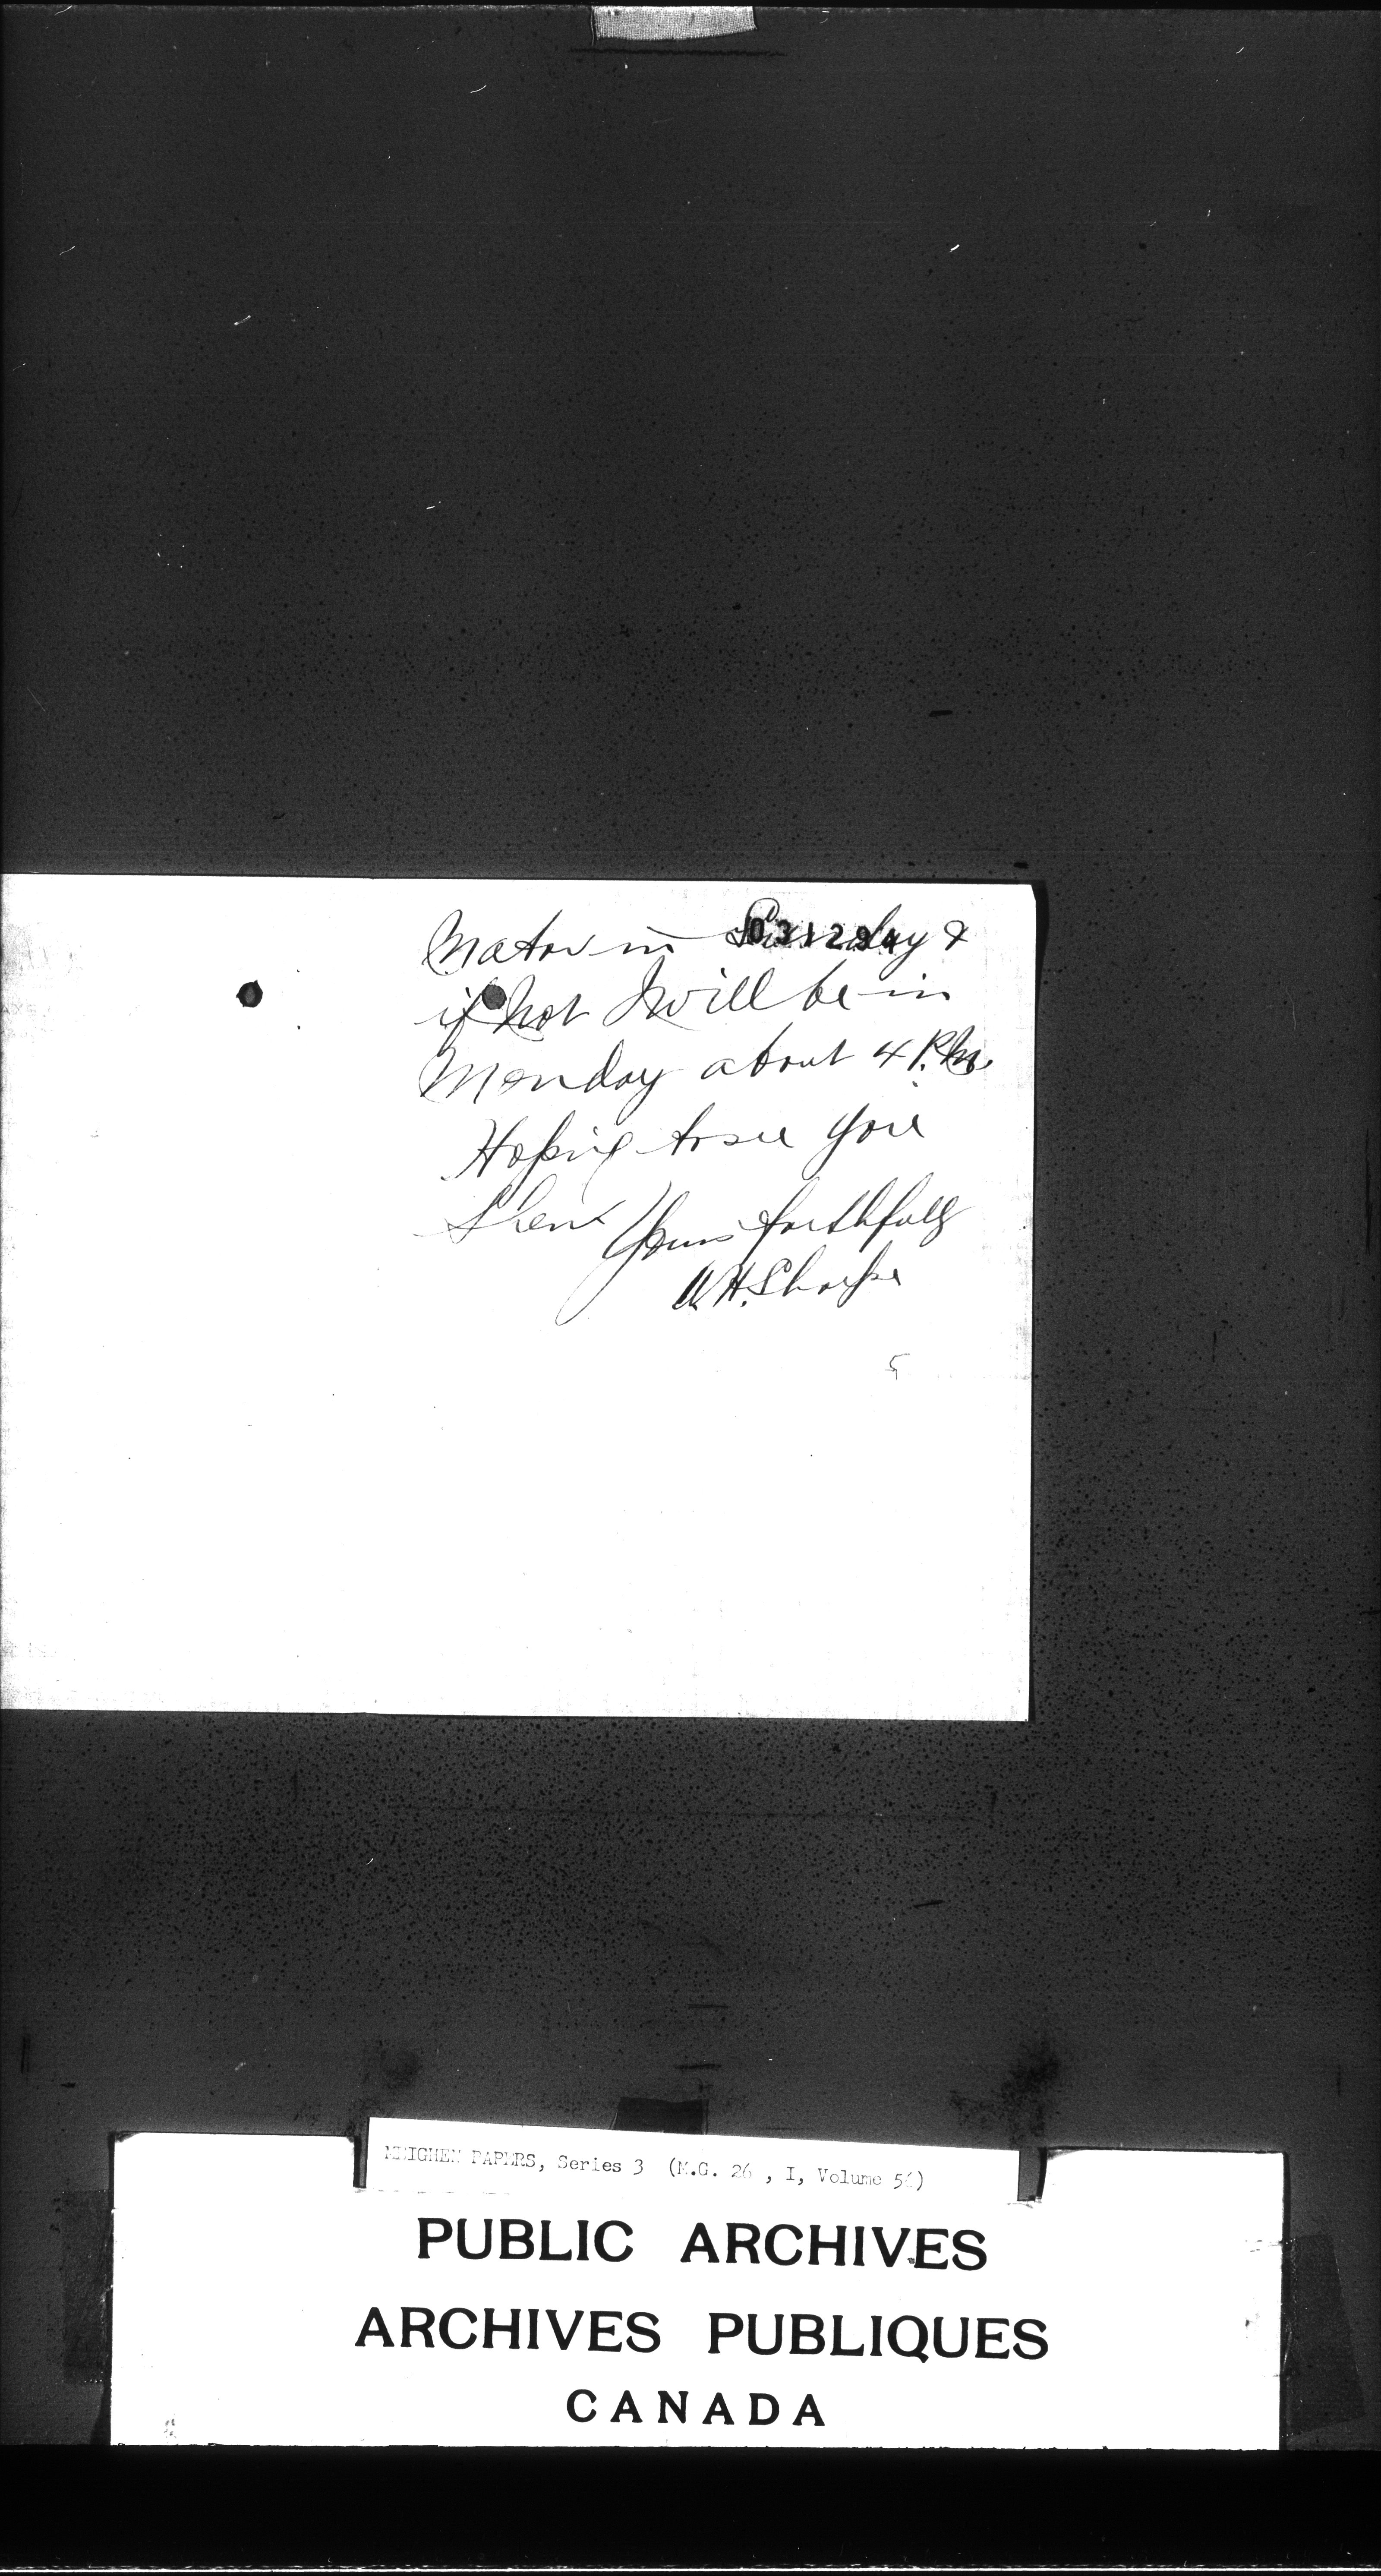 Motor in Sunday &
031294
if not I will be in
Monday about 4 P.M.
Hoping to see you
then Yours faithfully
W.H. Sharpe
5
MEIGHEN PAPERS, Series 3 (M.G. 26 , I, Volume 56)
PUBLIC ARCHIVES
ARCHIVES PUBLIQUES
CANADA